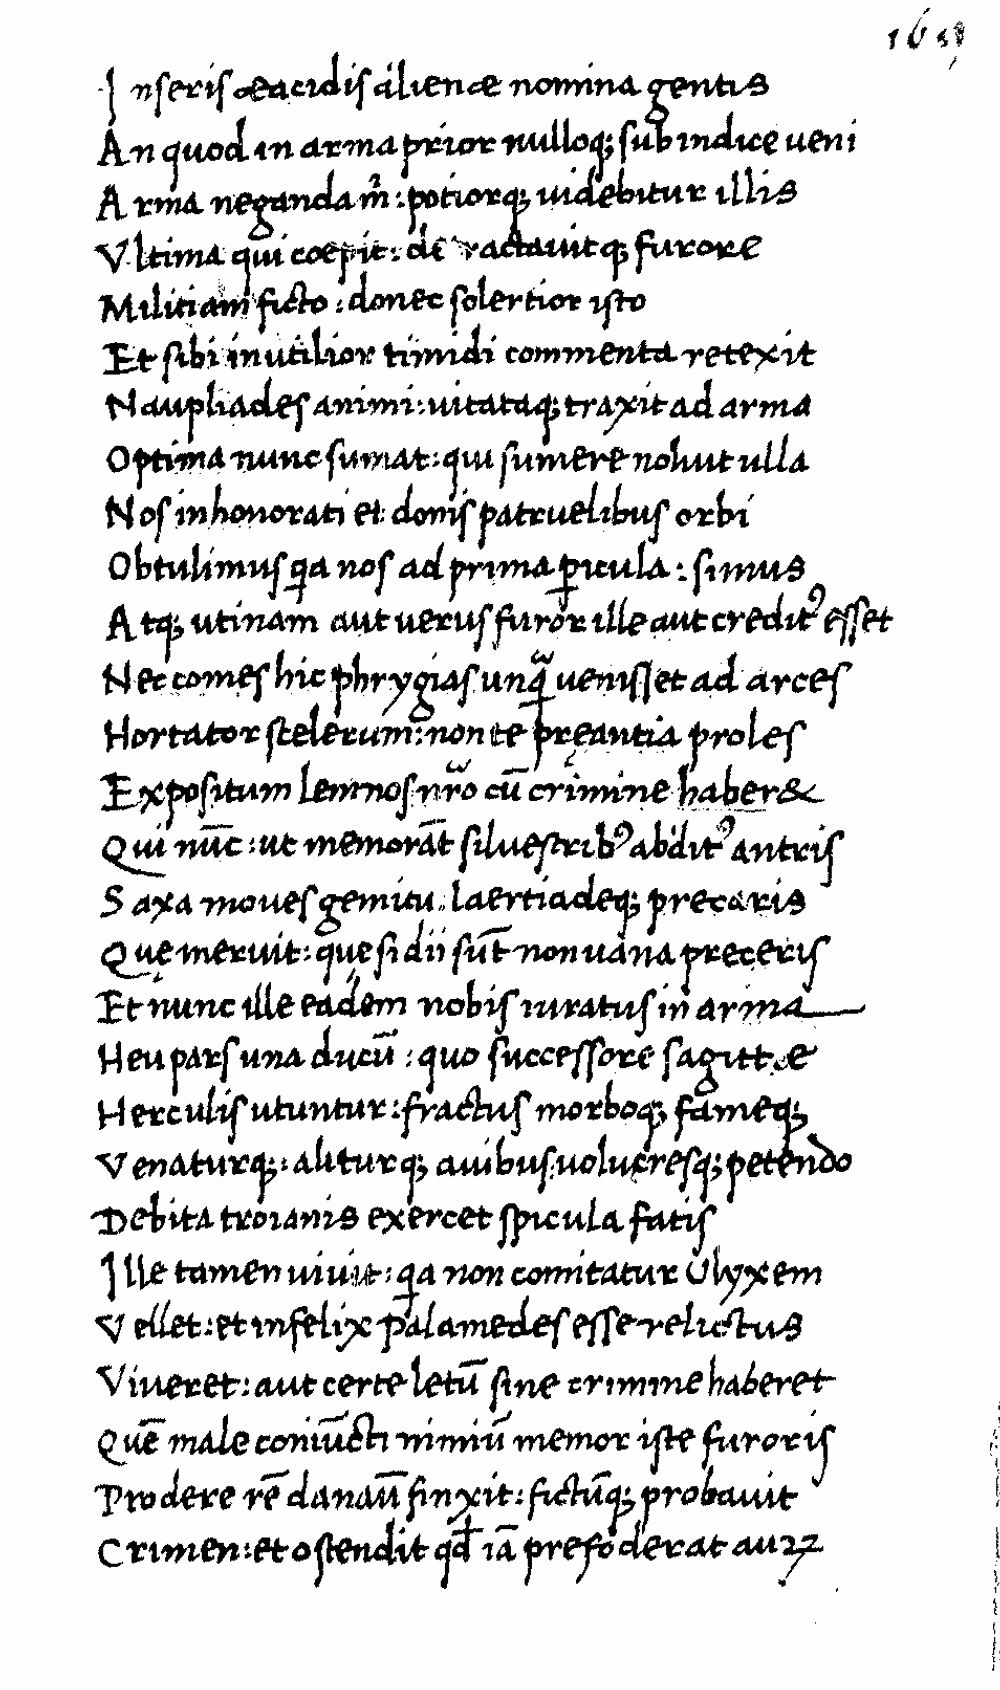 Inseris aeacidis alienae nomina gentis
An quod in arma prior nulloq; sub indice ueni
Arma neganda m̃: potiorq; uidebitur illis
Vltima qui coepit: detractauitq; furore
Militiam ficto: donec solertior isto
Et sibi inutilior timidi commenta retexit
Naupliades animi: uitataq; traxit ad arma
Optima nunc sumat: qui sumere noluit ulla
Nos inhonorati et donis patruelibus orbi
Obtulimus qa nos ad prima ꝑicula: simus
Atq; utinam aut uerus furor ille aut creditꝰ esset
Nec comes hic phrygias unq̃ uenisset ad arces
Hortator scelerum: non te pręantia proles
Expositum lemnos nr̃o cũ crimine haber&
Qui nũc: ut memorãt siluestribꝰ abditꝰ antris
Saxa moues gemitu. laertiadeq; precaris
Que meruit: quę si dii sũt non uana preceris
Et nunc ille eadem nobis iuratus in arma
Heu pars una ducũ: quo successore sagittae
Herculis utuntur: fractus morboq; fameq;
Venaturq;: aliturq; auibus: uolucresq; petendo
Debita troianis exercet spicula fatis
Ille tamen uiuit: qa non comitatur Ulyxem
Vellet: et infelix palamedes esse relictus
Viueret: aut certe letũ sine crimine haberet
Quẽ male coniũcti nimiũ memor iste furoris
Prodere rẽ danaũ finxit: fictũq; probauit
Crimen: et ostendit qđ iã prefoderat auꝝ